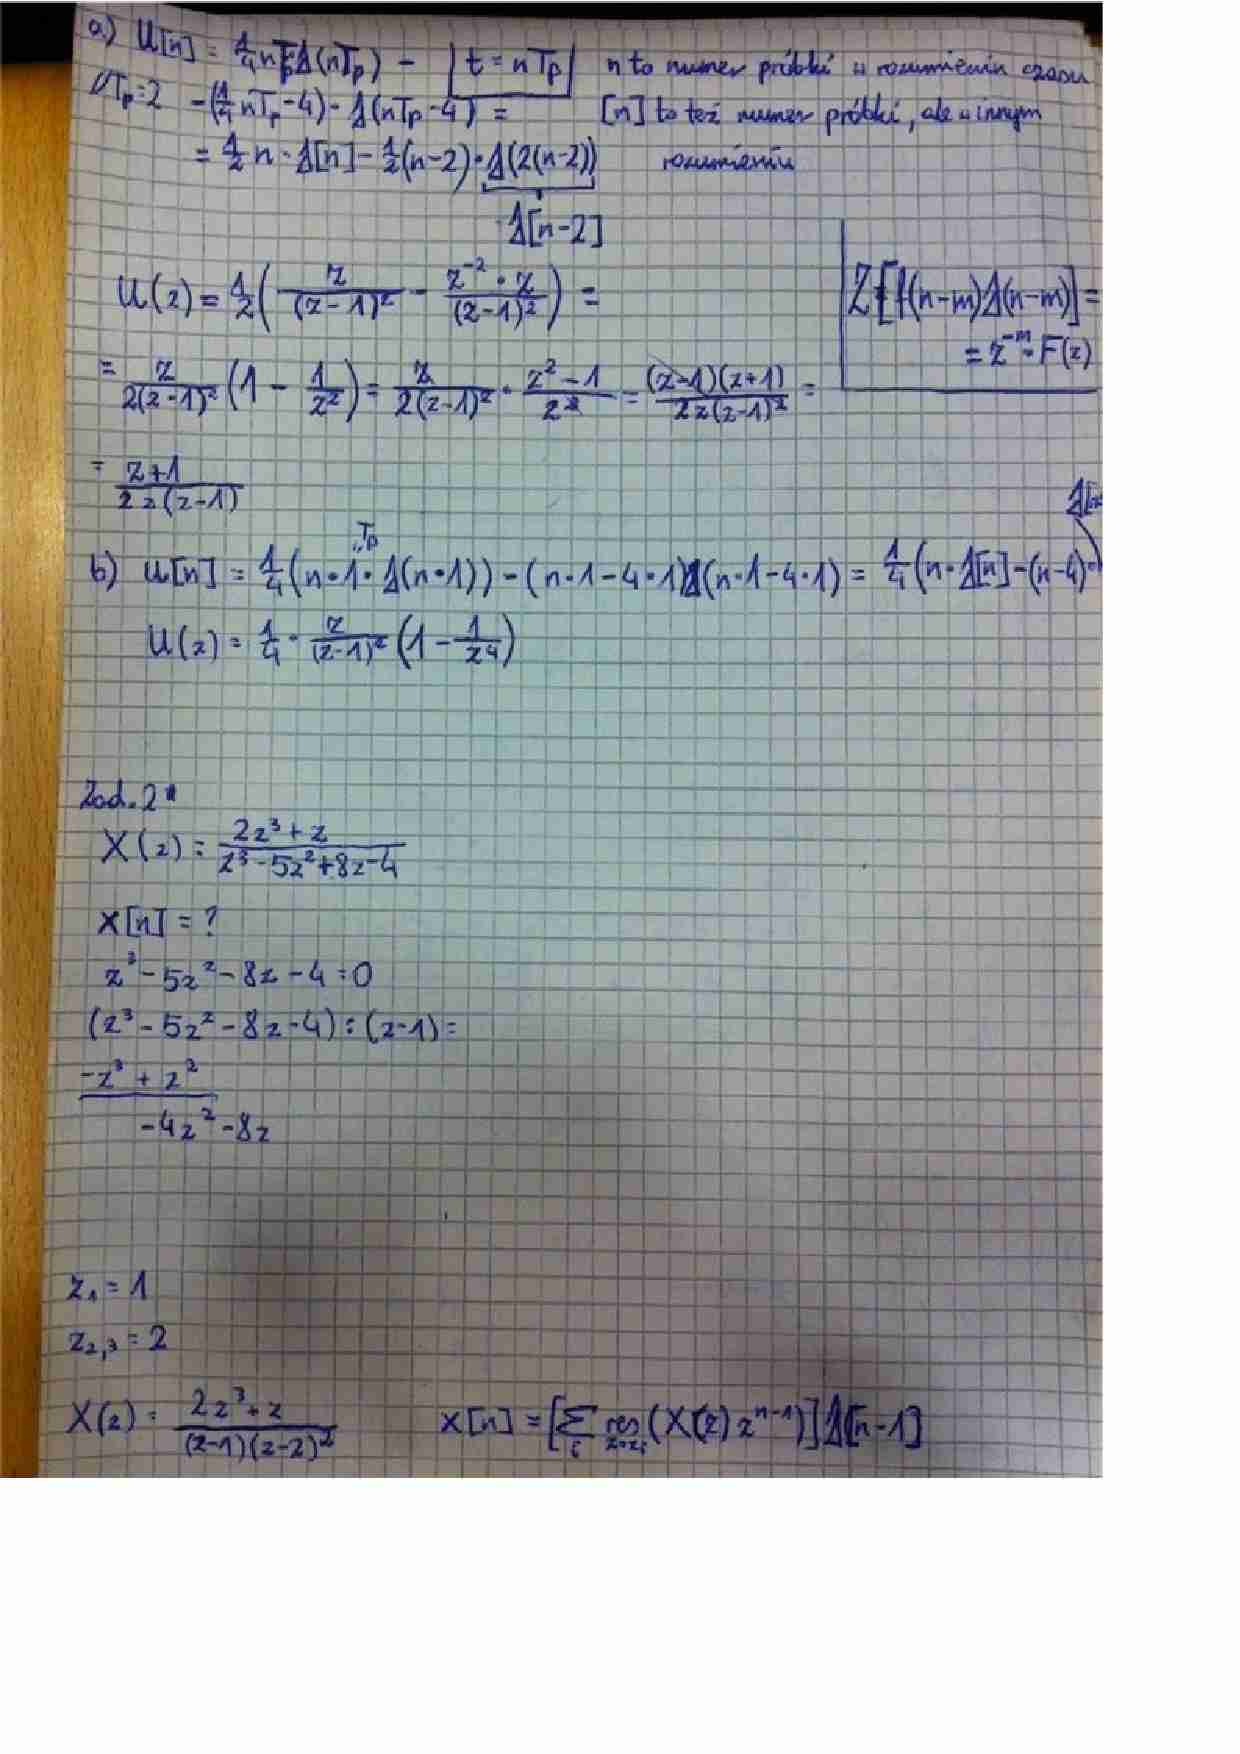 a) U[n] = 1/4 nTp·1(nTp) - | t = nTp | n to numer próbki w rozumieniu czasu
//Tp=2 -(1/4 nTp-4)-1(nTp-4) = [n] to też numer próbki, ale w innym
= 1/2 n·1[n] - 1/2(n-2)·1(2(n-2)) rozumieniu
1[n-2]
U(z) = 1/2 ( z/(z-1)² - z⁻²·z/(z-1)² ) =
Z[f(n-m)1(n-m)] =
= z⁻ᵐ·F(z)
= z/2(z-1)² (1 - 1/z²) = z/2(z-1)² · z²-1/z² = (z-1)(z+1)/2z(z-1)² =
= z+1/2z(z-1)
b) U[n] = 1/4 (n·1·1(n·1)) - (n·1-4·1)1(n·1-4·1) = 1/4 (n·1[n]-(n-4)·
"Tp
U(z) = 1/4 · z/(z-1)² (1 - 1/z⁴)
Zad. 2
X(z) = 2z³+z/z³-5z²+8z-4
x[n] = ?
z³-5z²-8z-4=0
(z³-5z²-8z-4):(z-1)=
-z³+z²
-4z²-8z
z₁=1
z₂,₃=2
X(z) = 2z³+z/(z-1)(z-2)² x[n] = [Σᵢ res z=zᵢ (X(z)zⁿ⁻¹)]1[n-1]